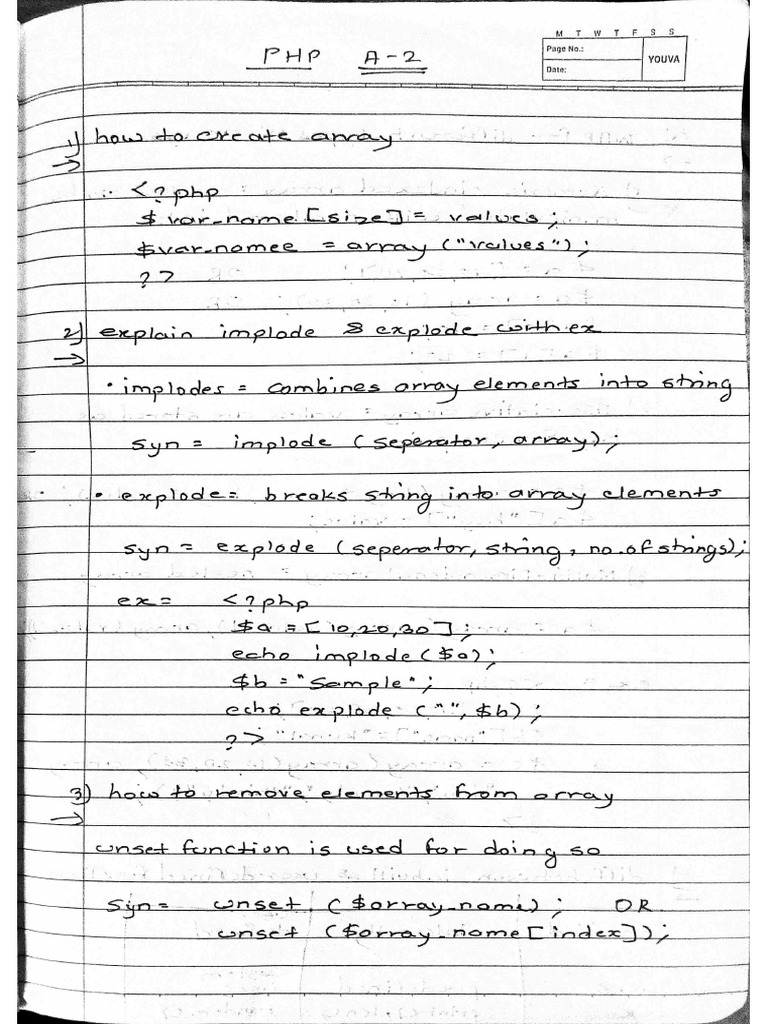 M T W T F S S
Page No.:
YOUVA
Date:
PHP A-2
1) how to create array
→
<?php
$var_name[size] = values;
$var_namee = array ("values");
?>
2) explain implode & explode with ex
→
• implodes = combines array elements into string
syn = implode (seperator, array);
• explode = breaks string into array elements
syn = explode (seperator, string, no.of strings);
ex = <?php
$a = [10,20,30];
echo implode($a);
$b = "Sample";
echo explode ("", $b);
?>
3) how to remove elements from array
→
unset function is used for doing so
syn = unset ($array_name); OR
unset ($array_name[index]);